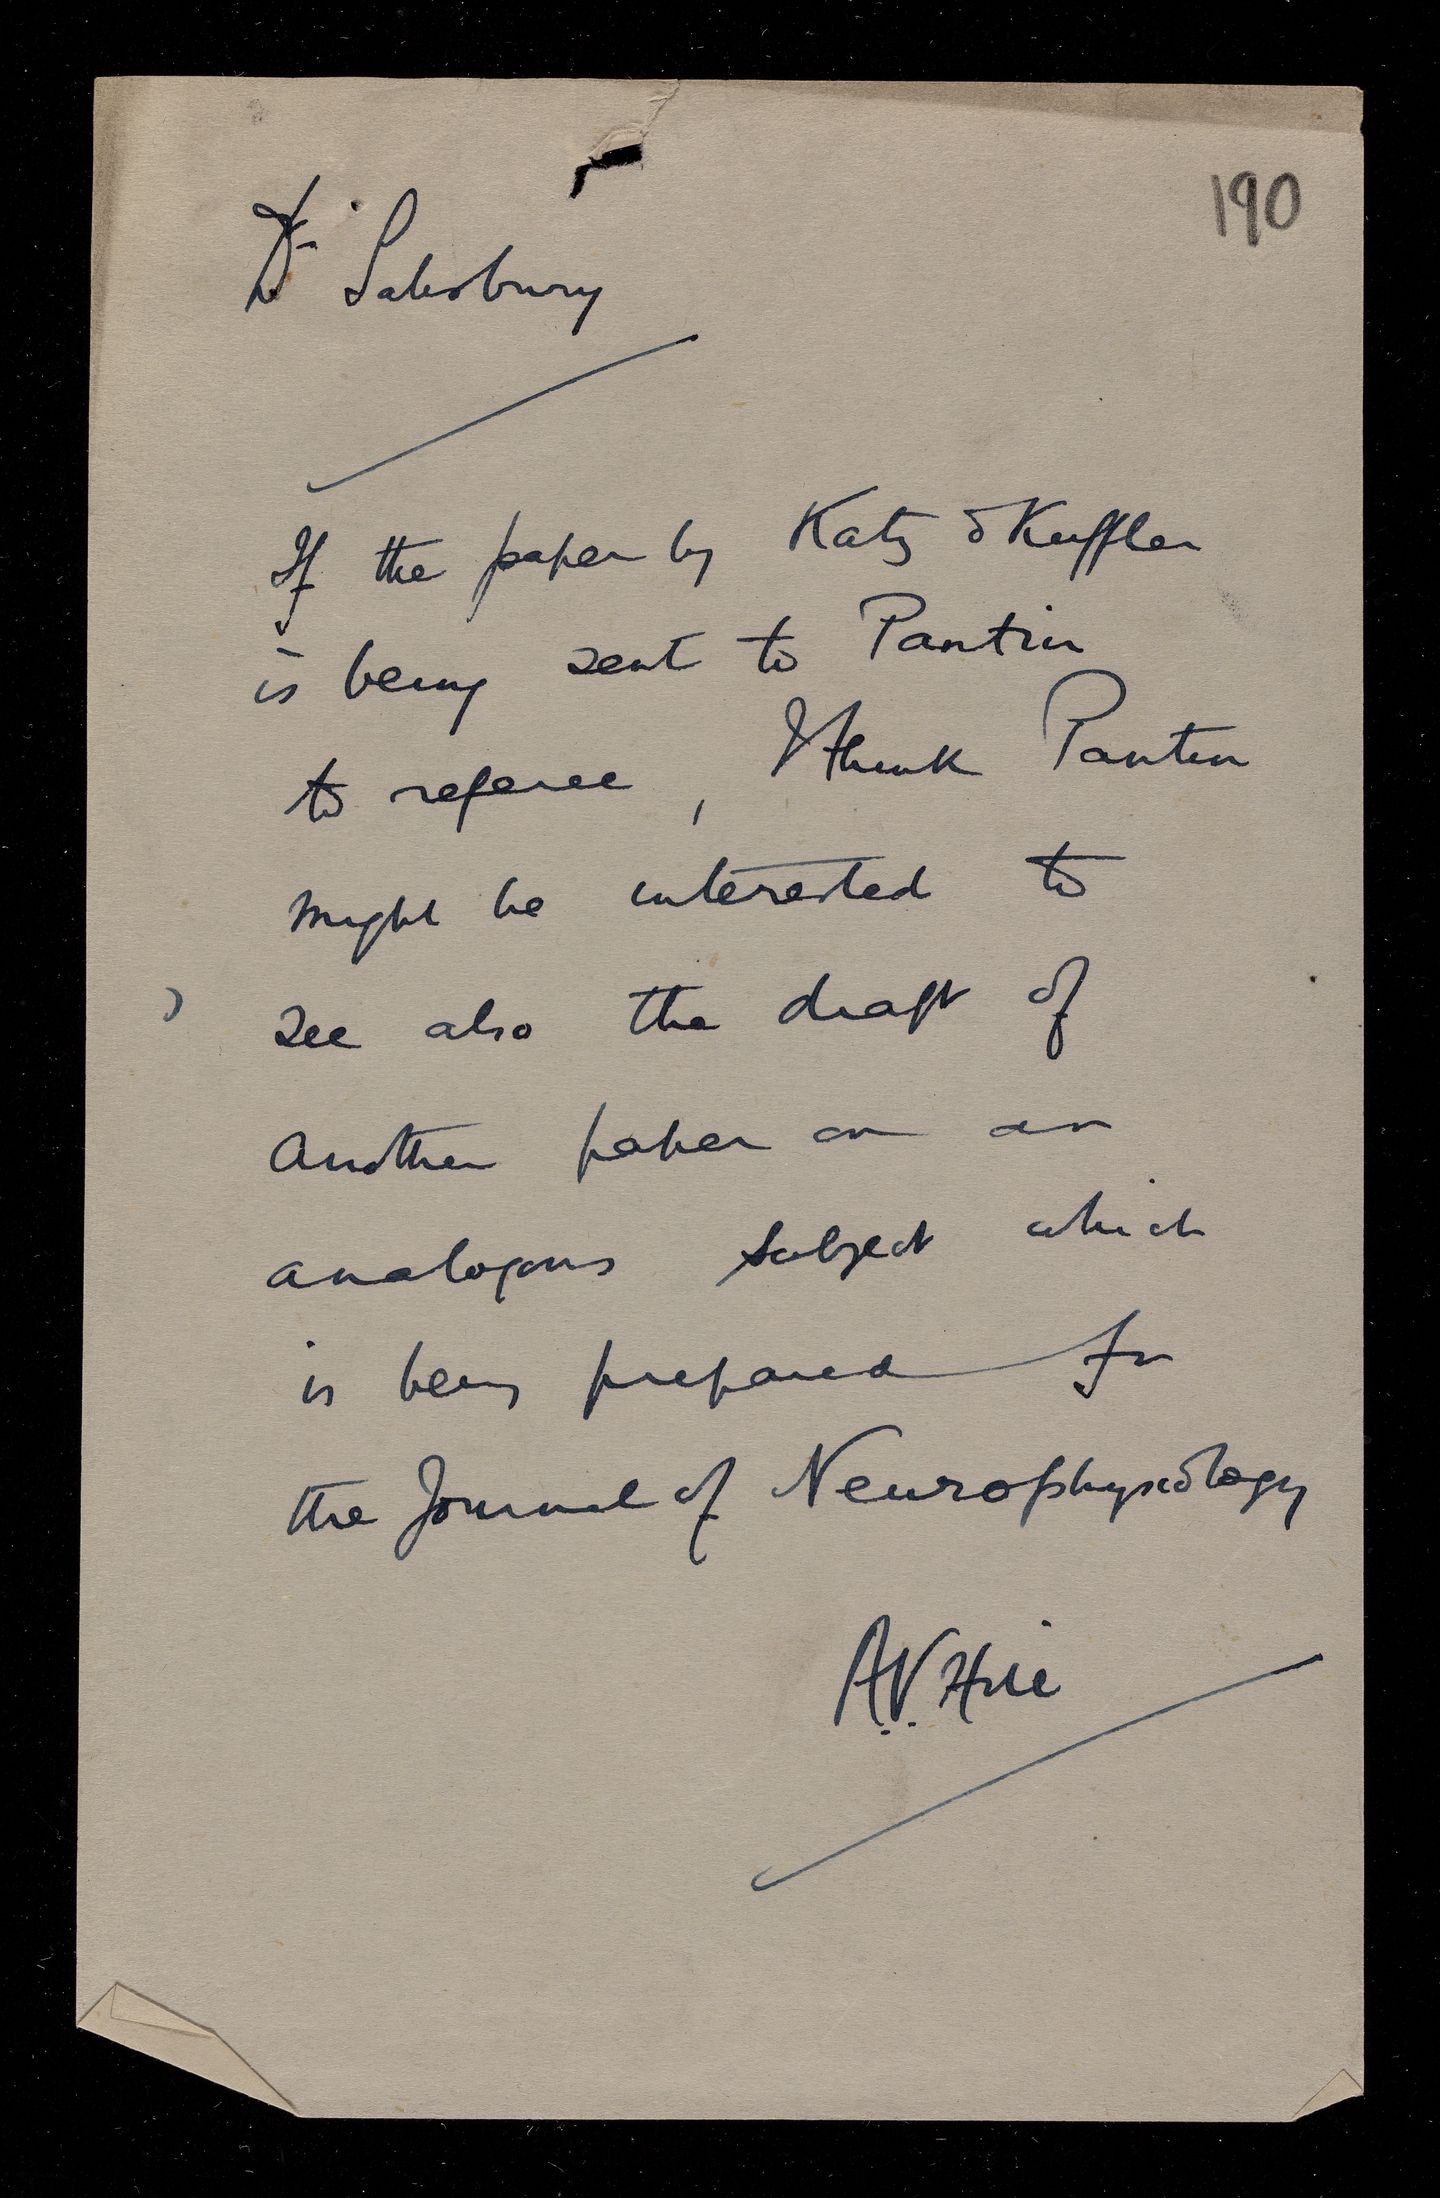 190
Dr Salisbury
If the paper by Katz & Kuffler
is being sent to Pantin
to referee, I think Pantin
might be interested to
see also the draft of
another paper on an
analogous subject which
is being prepared for
the Journal of Neurophysiology
A.V. Hill